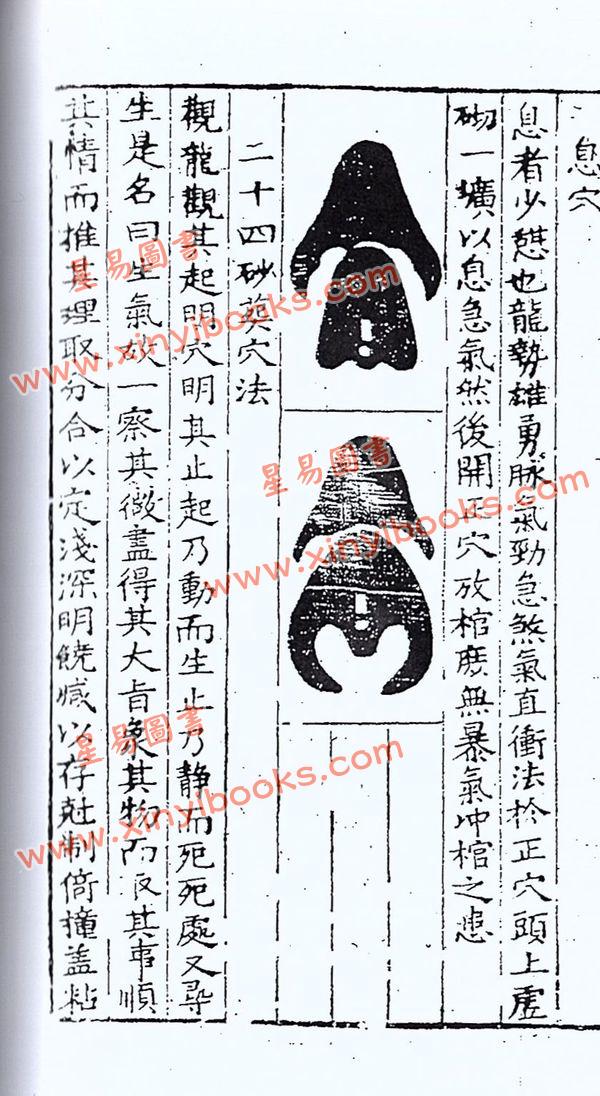 息穴
息者少憇也龍勢雄勇脉氣勁急煞氣直衝法於正穴頭上虛
砌一壙以息急氣然後開正穴放棺庶無暴氣冲棺之患
二十四砂葬穴法
觀龍觀其起明穴明其止起乃動而生止乃静而死死處又尋
生是名曰生氣故一察其微盡得其大旨象其物而取其事順
其情而推其理取分合以定淺深明饒减以存尅制倚撞盖粘
星易圖書
www.xinyibooks.com
星易圖書
www.xinyibooks.com
星易圖書
www.xinyibooks.com